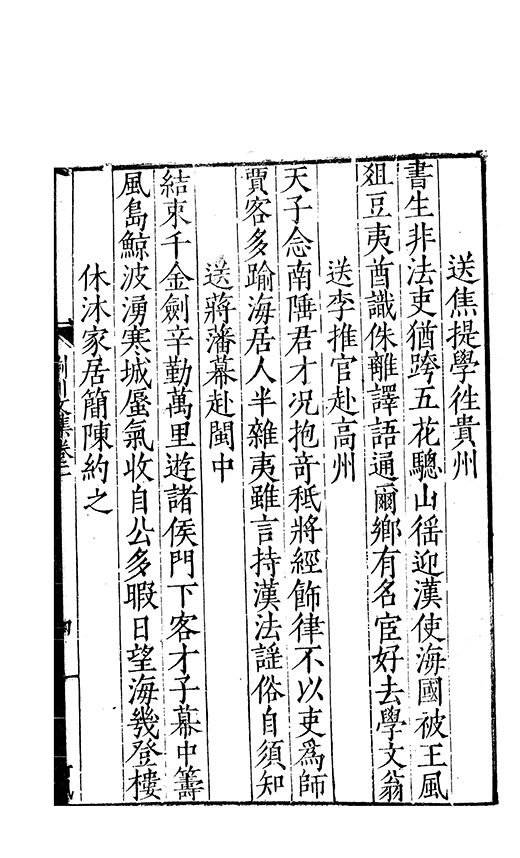 送焦提學徃貴州
書生非法吏猶跨五花驄山徭迎漢使海國被王風
爼豆夷酋識侏離譯語通爾鄉有名宦好去學文翁
送李推官赴高州
天子念南陲君才况抱竒秪將經飾律不以吏爲師
賈客多踰海居人半雜夷雖言持漢法謡俗自須知
送蔣藩幕赴閩中
結束千金劍辛勤萬里遊諸侯門下客才子幕中籌
風島鯨波湧寒城蜃氣收自公多暇日望海幾登樓
休沐家居簡陳約之
荆川文集卷二